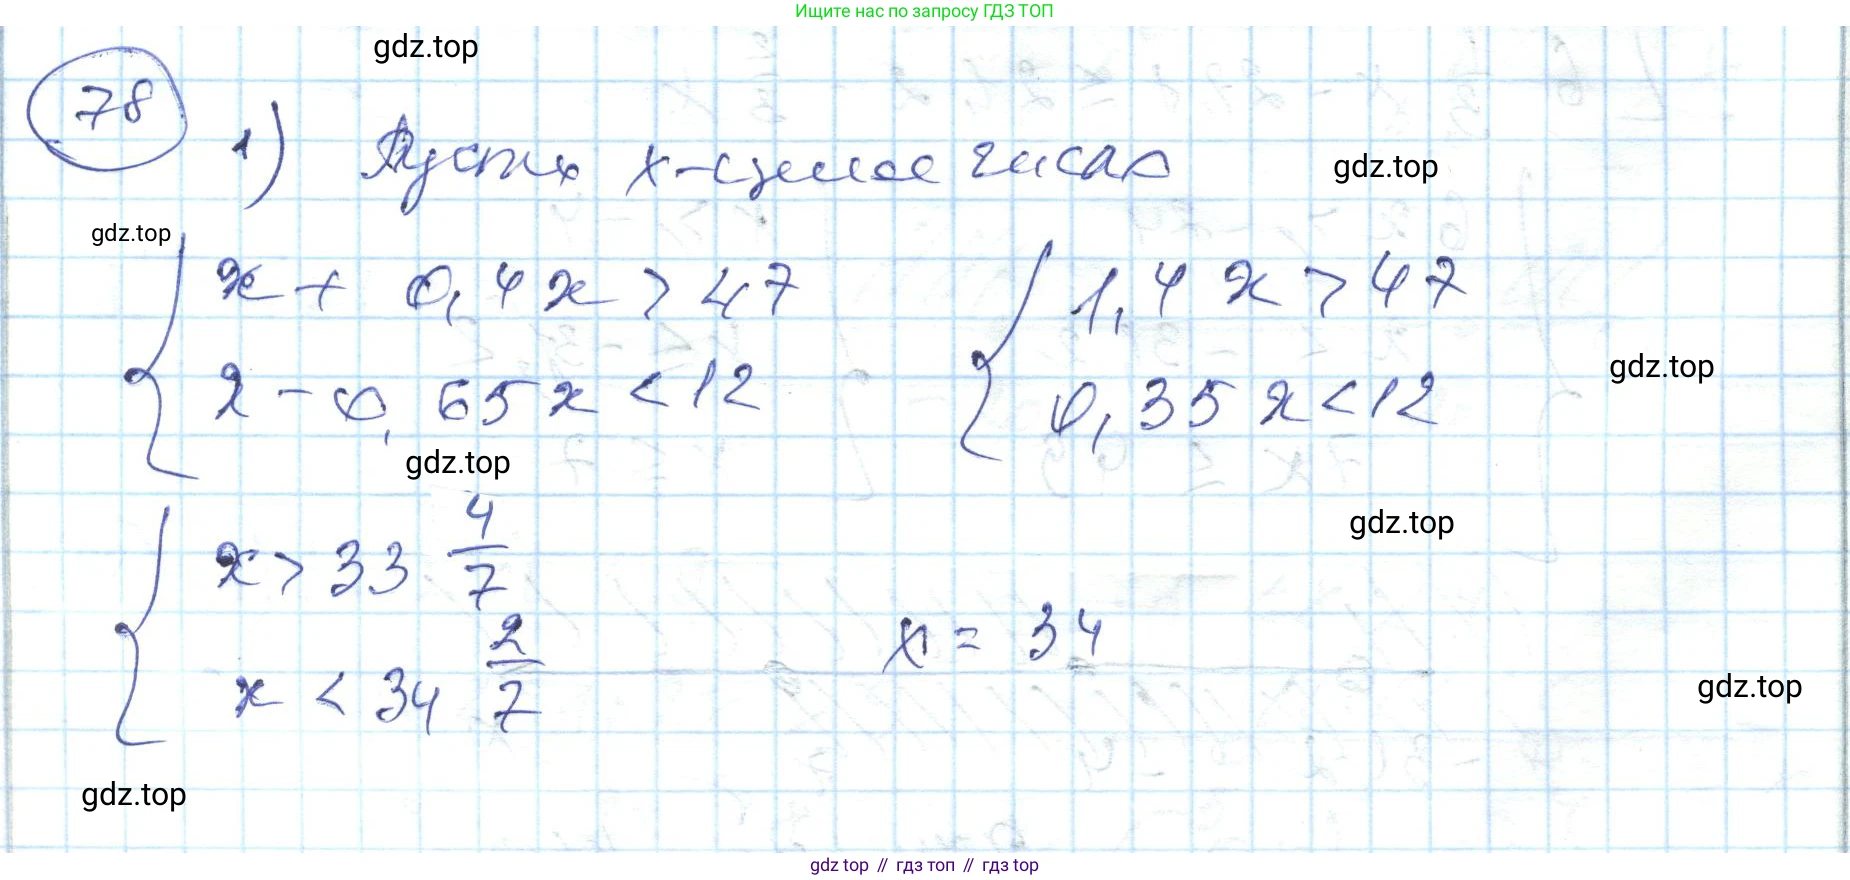 Ищите нас по запросу ГДЗ ТОП
gdz.top
78
1) Пусть x-целое число
gdz.top
gdz.top
{ x + 0,4x > 47
x - 0,65x < 12
{ 1,4x > 47
0,35x < 12
gdz.top
gdz.top
gdz.top
{ x > 33 4/7
x < 34 2/7
x = 34
gdz.top
gdz.top
gdz top // гдз топ // гдз top